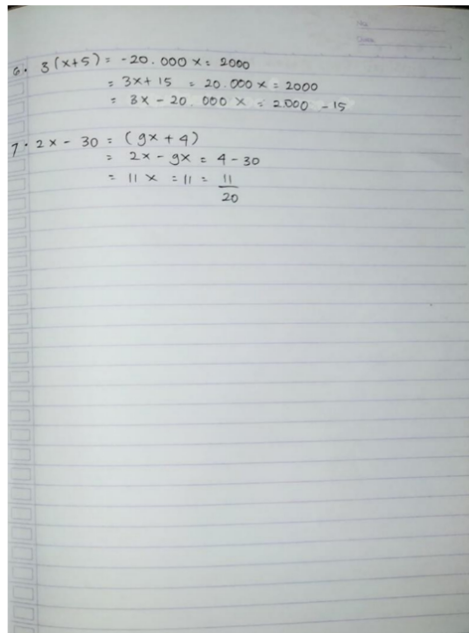 6. 3(x+5) = -20.000 x = 2000
= 3x + 15 = 20.000 x = 2000
= 3x - 20.000 x = 2.000 - 15
7. 2x - 30 = (9x + 4)
= 2x - 9x = 4 - 30
= 11 x = 11 = 11/20